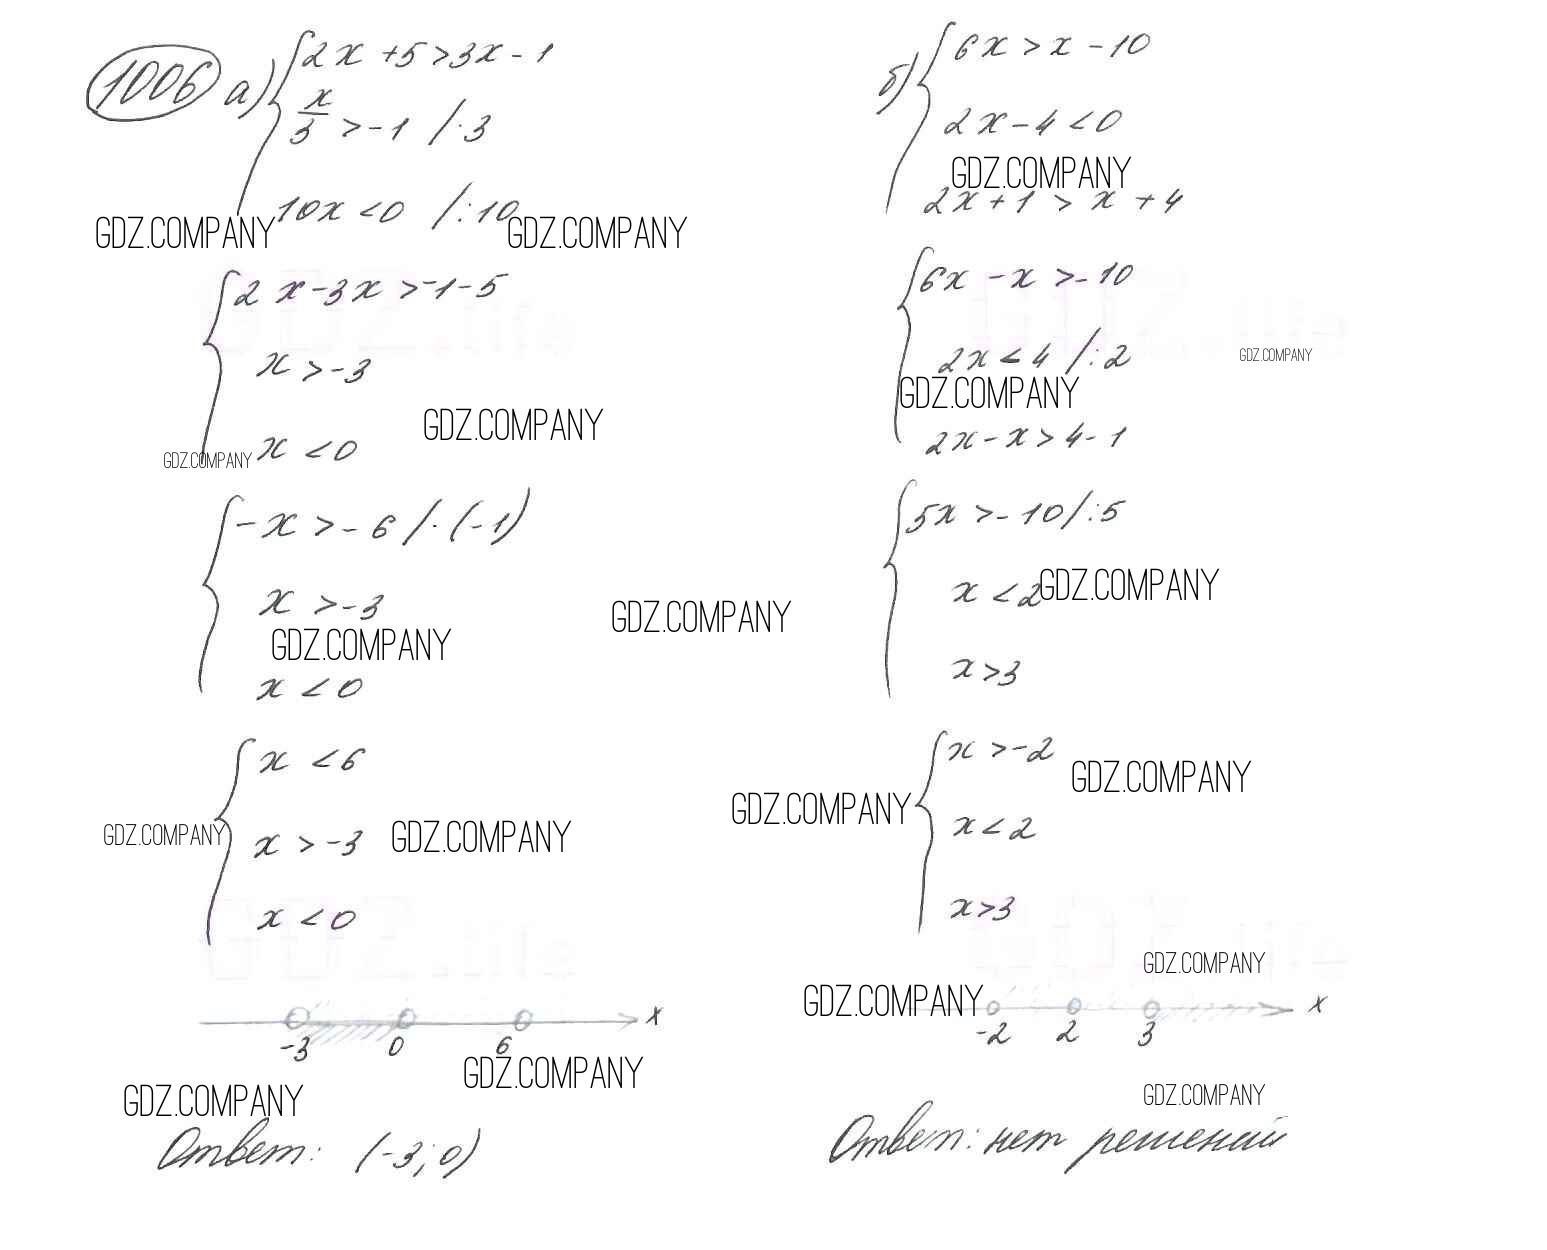 1006 а) 2x + 5 > 3x - 1
x/3 > -1 / · 3
10x < 0 / : 10
GDZ.COMPANY GDZ.COMPANY
2x - 3x > -1 - 5
x > -3
GDZ.COMPANY
x < 0
GDZ.COMPANY
-x > -6 / · (-1)
x > -3
GDZ.COMPANY
GDZ.COMPANY
x < 0
x < 6
GDZ.COMPANY GDZ.COMPANY
x > -3
x < 0
-3 0 6 x
GDZ.COMPANY
GDZ.COMPANY
Ответ: (-3; 0)
б) 6x > x - 10
2x - 4 < 0
GDZ.COMPANY
2x + 1 > x + 4
6x - x > -10
2x < 4 / : 2
GDZ.COMPANY
GDZ.COMPANY
2x - x > 4 - 1
5x > -10 / : 5
x < 2
GDZ.COMPANY
x > 3
x > -2
GDZ.COMPANY
GDZ.COMPANY
x < 2
x > 3
GDZ.COMPANY
GDZ.COMPANY
-2 2 3 x
GDZ.COMPANY
Ответ: нет решений